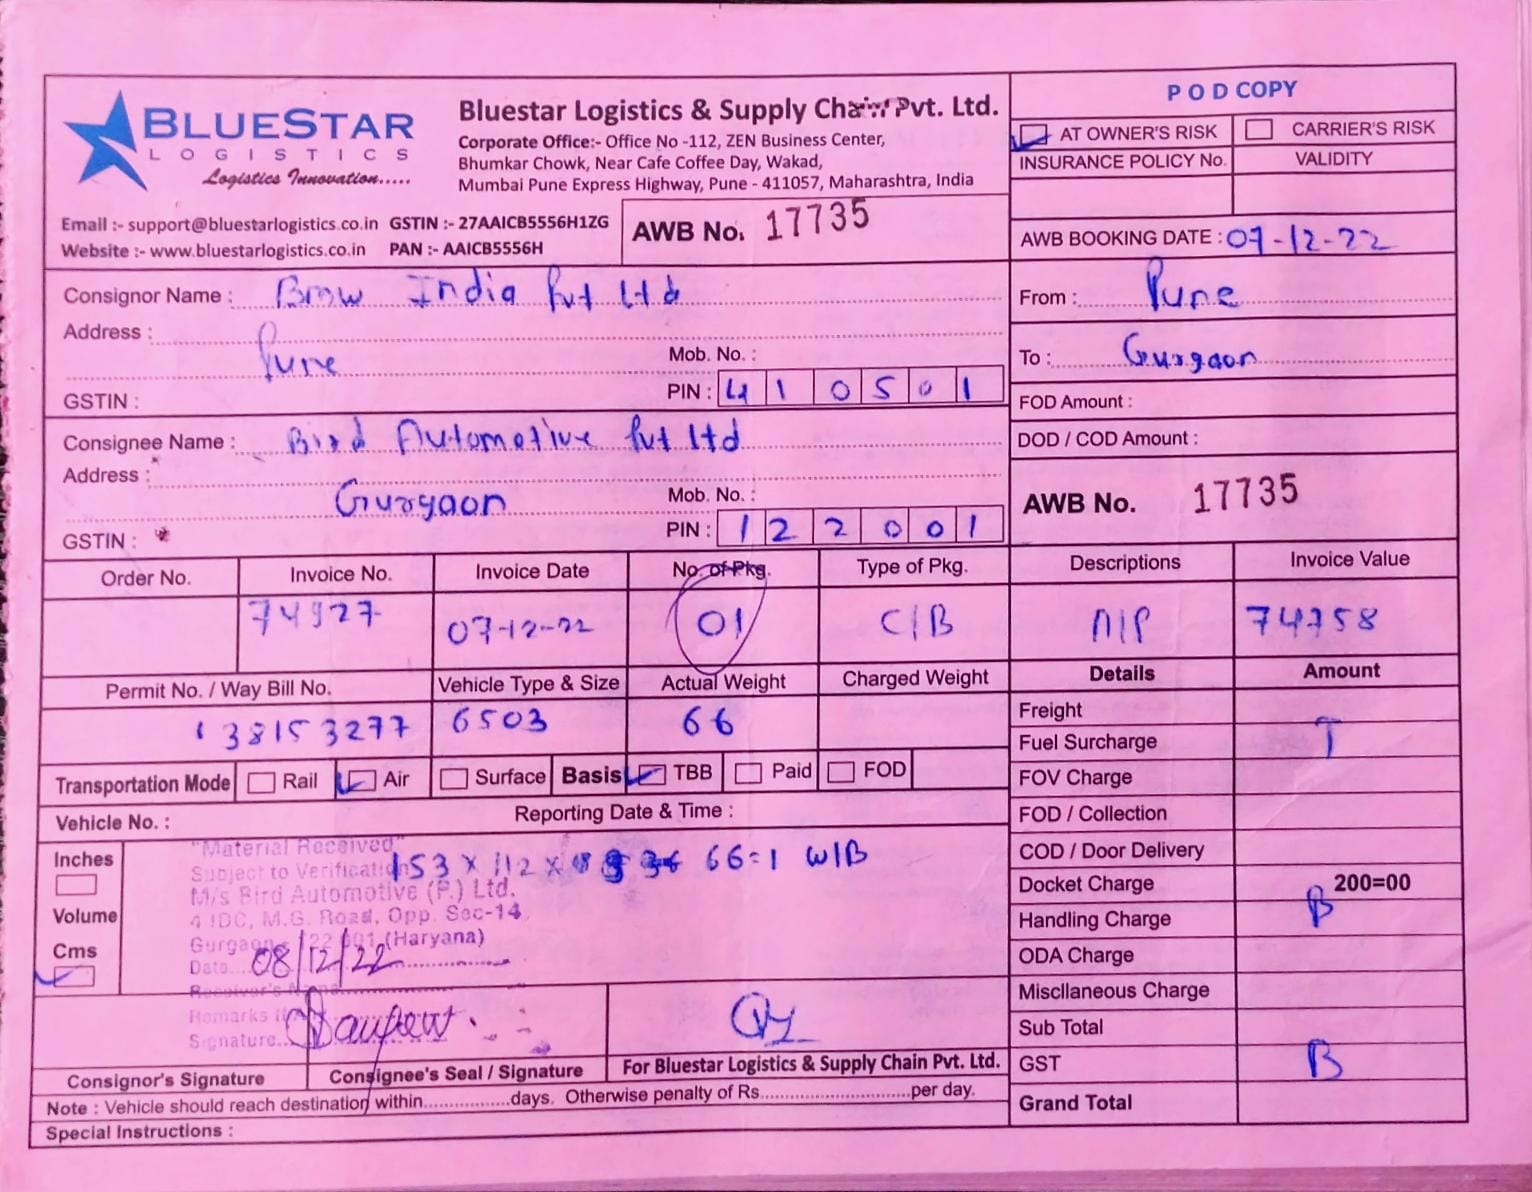 BLUESTAR
LOGISTICS
Logistics Innovation.....
Bluestar Logistics & Supply Chain Pvt. Ltd.
Corporate Office:- Office No -112, ZEN Business Center,
Bhumkar Chowk, Near Cafe Coffee Day, Wakad,
Mumbai Pune Express Highway, Pune - 411057, Maharashtra, India
Email :- support@bluestarlogistics.co.in GSTIN :- 27AAICB5556H1ZG
Website :- www.bluestarlogistics.co.in PAN :- AAICB5556H
AWB No. 17735
POD COPY
AT OWNER'S RISK CARRIER'S RISK
INSURANCE POLICY No. VALIDITY
AWB BOOKING DATE : 07-12-22
Consignor Name : Bmw India Pvt Ltd
Address :
Pune
Mob. No. :
GSTIN : PIN : 410501
From : Pune
To : Gurgaon
FOD Amount :
Consignee Name : Bird Automotive Pvt Ltd
DOD / COD Amount :
Address :
Gurgaon
Mob. No. :
GSTIN : PIN : 122001
AWB No. 17735
Order No. Invoice No. Invoice Date No. of Pkg. Type of Pkg. Descriptions Invoice Value
74927 07-12-22 01 C/B A/P 74758
Permit No. / Way Bill No. Vehicle Type & Size Actual Weight Charged Weight Details Amount
138153277 6503 66
Freight
Fuel Surcharge T
Transportation Mode Rail Air Surface Basis TBB Paid FOD
FOV Charge
Vehicle No. : Reporting Date & Time :
FOD / Collection
Inches
Volume
Cms
"Material Received"
Subject to Verification
M/s Bird Automotive (P.) Ltd.
4 IDC, M.G. Road, Opp. Sec-14
Gurgaon 122 001 (Haryana)
Date 08/12/22
Receiver's Name
Remarks if
Signature
153 x 112 x 36 66=1 W/B
COD / Door Delivery
Docket Charge 200=00
Handling Charge B
ODA Charge
Miscllaneous Charge
Sub Total
GST B
Grand Total
Consignor's Signature Consignee's Seal / Signature For Bluestar Logistics & Supply Chain Pvt. Ltd.
Note : Vehicle should reach destination within..................days. Otherwise penalty of Rs.................................per day.
Special Instructions :